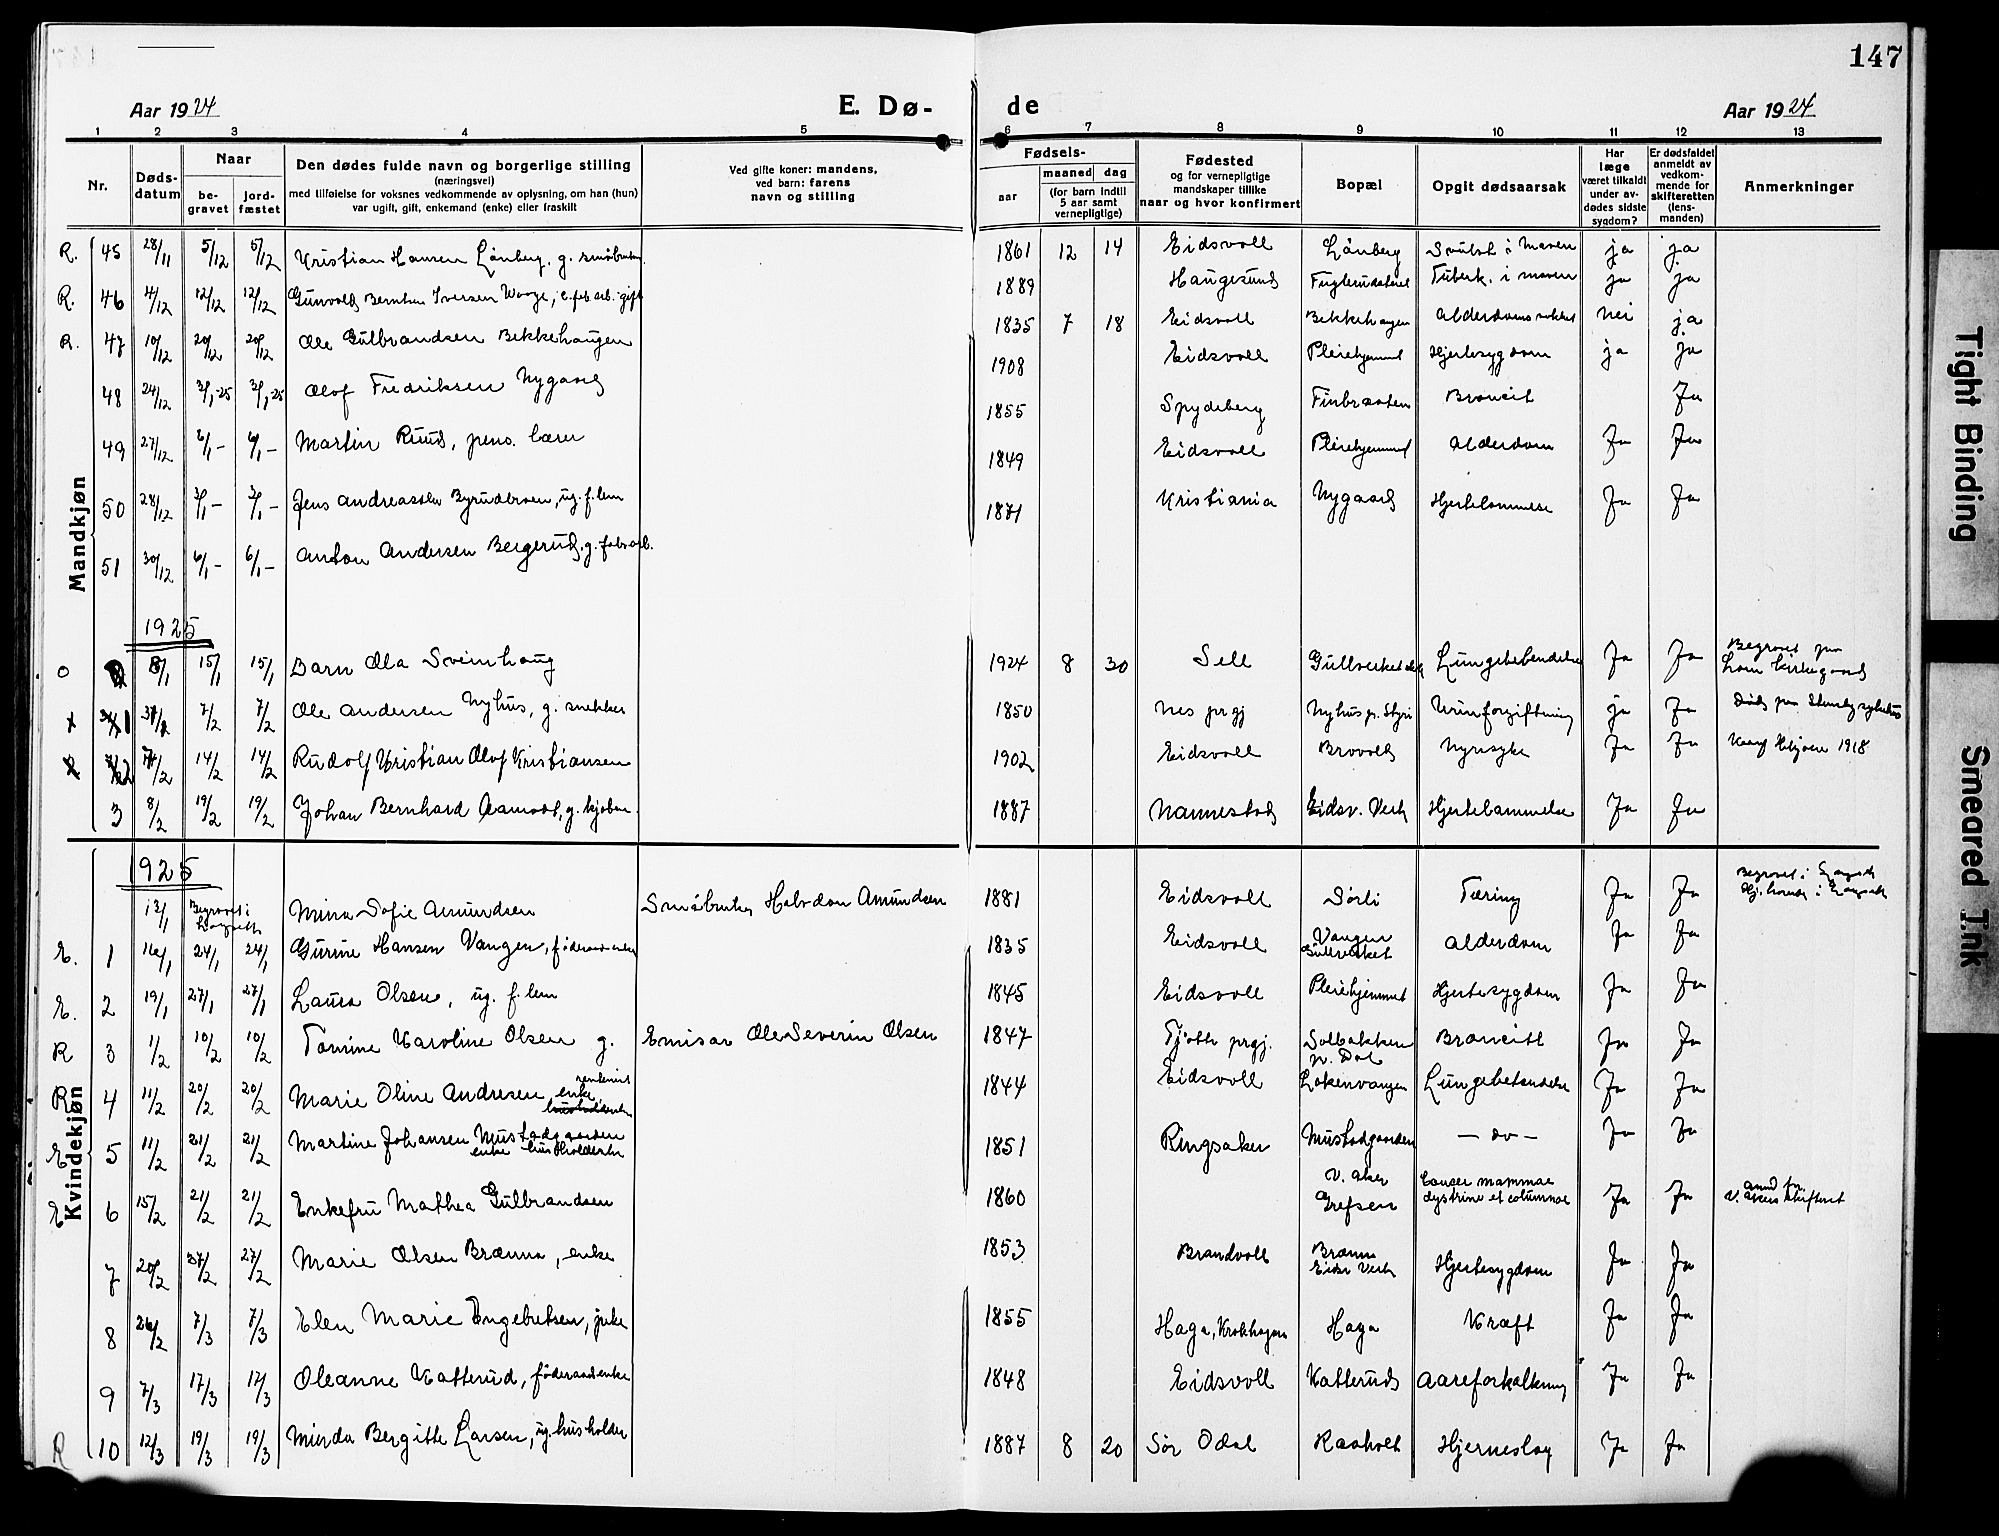 147
Aar 1924 E. Dø- de Aar 1924
1 2 3 4 5 6 7 8 9 10 11 12 13
Nr. Døds-datum Naar be-gravet jord-fæstet
Den dødes fulde navn og borgerlige stilling
(næringsvei)
med tilføielse for voksnes vedkommende av oplysning, om han (hun)
var ugift, gift, enkemand (enke) eller fraskilt
Ved gifte koner: mandens,
ved barn: farens
navn og stilling
Fødsels-
aar maaned dag
(for barn indtil
5 aar samt
vernepligtige)
Fødested
og for vernepligtige
mandskaper tillike
naar og hvor konfirmert
Bopæl
Opgit dødsaarsak
Har
læge
været tilkaldt
under av-
dødes sidste
sygdom?
Er dødsfaldet
anmeldt av
vedkom-
mende for
skifteretten
(lens-
manden)
Anmerkninger
Mandkjøn
R. 45 28/11 5/12 5/12 Kristian Hansen Lønberg, g. småbruker 1861 12 14 Eidsvoll Lønberg Svulst i Maven ja ja
R. 46 4/12 12/12 12/12 Gunvald Bernhan Iversen gift 1889 Haugesund Tuberk. i maven ja ja
R. 47 10/12 20/12 20/12 Ole Gulbrandsen Bekkehaugen 1835 7 18 Eidsvoll Bekkehaugen nei ja
48 24/12 3/1-25 3/1-25 Olof Fredriksen Nygaard 1908 Eidsvoll Pleiehjemmet Hjertesygdom ja ja
49 27/12 6/1- 6/1- Martin Ruud, pens. lærer 1855 Spydeberg Finbraaten Broncit Ja
50 28/12 3/1- 3/1- Jens Andreassen Byrudbroen, ug. f. lem 1849 Eidsvoll Pleiehjemmet Alderdom Ja Ja
51 30/12 6/1- 6/1- Anton Andersen Bergerud, g. fabr.arb. 1871 Kristiania Nygaard Hjertelammelse Ja Ja
1925
0 8/1 15/1 15/1 Barn Ola Sveinhaug 1924 8 30 Sell Gullverket Lungebetendelse Ja Ja Begravet paa
Lom kirkegaard
x 1 7/2 7/2 Ole Andersen Nyhus, g. snekker 1850 Nes prgj Nyhus p. Styri Urinforgiftning ja Ja Død paa Stensby sykehus
x 2 7/2 14/2 14/2 Rudolf Kristian Olof Kristiansen 1902 Eidsvoll Brovold Nyresyke Ja Ja 1918
3 8/2 19/2 19/2 Johan Bernhard Aamodt, g. kjøbm. 1887 Nannestad Eidsv. Verk Hjertelammelse Ja Ja
Kvindekjøn
1925
13/1 Begravet i
Langseth Mina Sofie Amundsen Småbruker Halvdan Amundsen 1881 Eidsvoll Dørli Tæring Ja Ja Begravet i Langseth
E. 1 16/1 24/1 24/1 Gurine Hansen Vangen, føderaadsenke 1835 Eidsvoll Vangen
Gullverket Alderdom Ja Ja
E. 2 19/1 27/1 27/1 Laura Olsen, ug. f. lem 1845 Eidsvoll Pleiehjemmet Hjertesygdom Ja Ja
R 3 1/2 10/2 10/2 Tomine Karoline Olsen g. Emisær Ole Severin Olsen 1847 Tjøtta prgj. Solbakken
p. Dal Broncitt Ja Ja
R 4 11/2 20/2 20/2 Marie Oline Andresen enke, rentenist 1844 Eidsvoll Løkenvangen Lungebetendelse Ja Ja
E 5 11/2 21/2 21/2 Martine Johansen Mustadgaarden
enke husholderske 1851 Ringsaker Mustadgaarden - do - Ja Ja
E 6 15/2 21/2 21/2 Enkefru Mathea Gulbrandsen 1860 V. Aker
Grefsen Cancer mammae
dystrine et columnae Ja Ja anm. for
V. Akers skifteret
7 20/2 27/2 27/2 Marie Olsen Brænna, enke 1853 Brandvoll Brænna
Eidsv Verk Hjertesygdom Ja Ja
8 26/2 7/3 7/3 Elen Marie Engebretsen, pike 1855 Haga, Krokhagen Haga Kræft Ja Ja
9 7/3 17/3 17/3 Oleanne Katterud, føderaadsenke 1848 Eidsvoll Katterud Aareforkalkning Ja Ja
R 10 12/3 19/3 19/3 Minda Bergitte Larsen, ug. husholder 1887 8 20 Sør Odal Raaholt Hjerneslag Ja Ja
Tight Binding
Smeared Ink